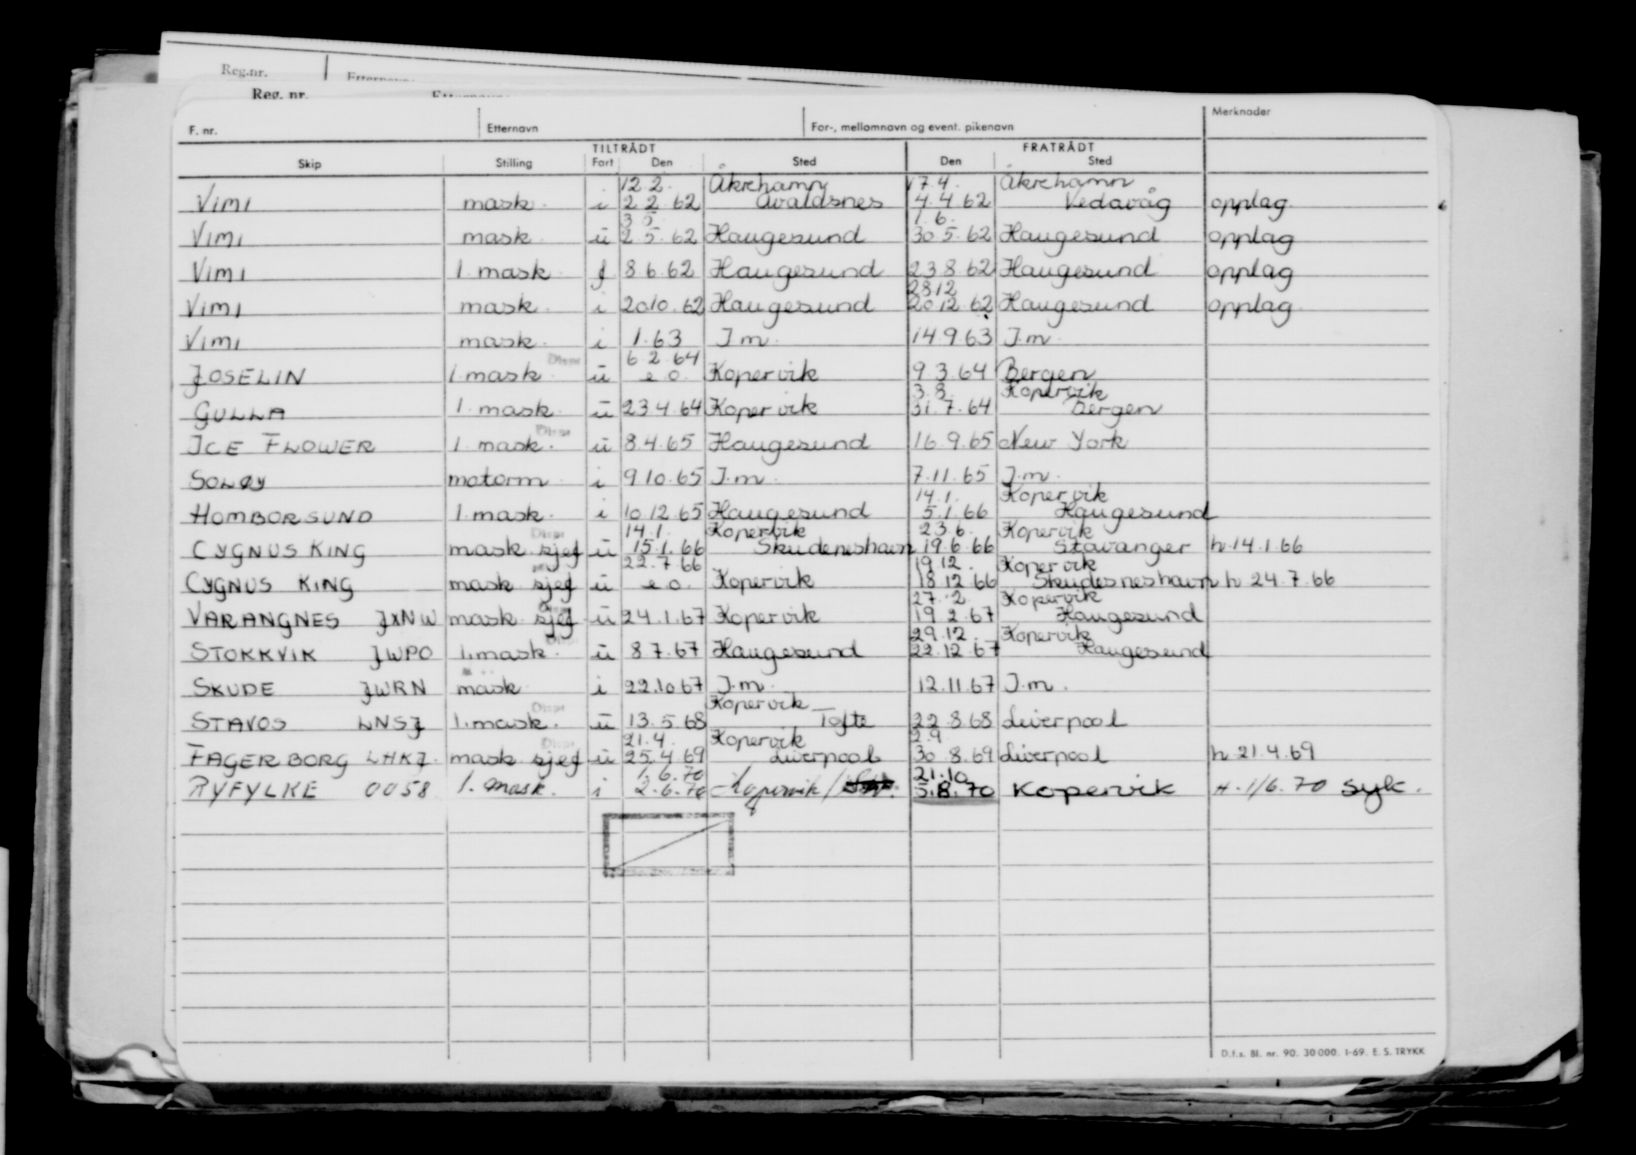 Reg.nr.
Reg. nr.
F. nr. Etternavn For-, mellomnavn og event. pikenavn Merknader
TILTRÅDT FRATRÅDT
Skip Stilling Fart Den Sted Den Sted
12.2. Åkrehamn 17.4. Åkrehamn
Vimi mask. i 2.2.62 Avaldsnes 4.4.62 Vedavåg opplag
3.5 1.6.
Vimi mask. u 2.5.62 Haugesund 30.5.62 Haugesund opplag
Vimi 1 mask f 8.6.62 Haugesund 23.8.62 Haugesund opplag
28.12
Vimi mask. i 20.10.62 Haugesund 20.12.62 Haugesund opplag.
Vimi mask. i 1.63 I.m. 14.9.63 I.m.
Disp 6.2.64
JOSELIN 1 mask u e.o. Kopervik 9.3.64 Bergen
3.8. Kopervik
GULLA 1. mask. u 23.4.64 Kopervik 31.7.64 Bergen
Disp
ICE FLOWER 1. mask. u 8.4.65 Haugesund 16.9.65 New York
SOLØY motorm i 9.10.65 I.m. 7.11.65 I.m.
14.1. Kopervik
HOMBORSUND 1. mask. i 10.12.65 Haugesund 5.1.66 Haugesund
Disp 14.1. Kopervik 23.6. Kopervik
CYGNUS KING mask sjef u 15.1.66 Skudeneshavn 19.6.66 Stavanger h.14.1.66
22.7.66 19.12. Kopervik
CYGNUS KING mask sjef u e.o. Kopervik 18.12.66 Skudesneshavn h 24.7.66
Disp 27.2 Kopervik
VARANGNES JXNW mask sjef u 24.1.67 Kopervik 19.2.67 Haugesund
Disp 29.12. Kopervik
STOKKVIK JWPO 1. mask. u 8.7.67 Haugesund 22.12.67 Haugesund
SKUDE JWRN mask i 22.10.67 I.m. 12.11.67 I.m.
Disp Kopervik
STAVOS LNSJ 1. mask. u 13.5.68 Tofte 22.8.68 Liverpool
Disp 21.4. Kopervik 2.9
FAGERBORG LHKJ. mask sjef u 25.4.69 Liverpool 30.8.69 Liverpool h 21.4.69
1.6.70 21.10
RYFYLKE 0058 1. mask. i 2.6.70 Kopervik / 5.8.70 Kopervik H. 1/6.70 syk.
D.f.s. Bl. nr. 90. 30 000. 1-69. E. S. TRYKK